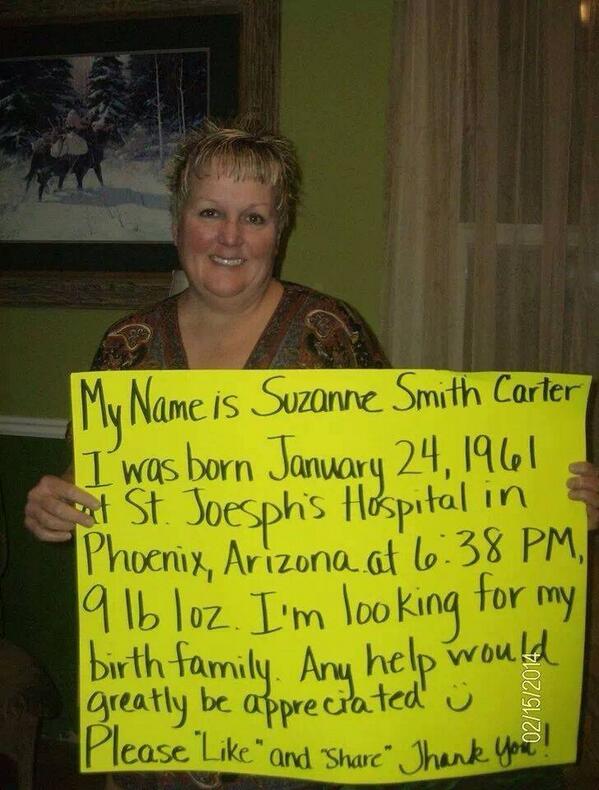 My Name is Suzanne Smith Carter
I was born January 24, 1961
at St. Joesph's Hospital in
Phoenix, Arizona at 6:38 PM,
9 lb 1oz. I'm looking for my
birth family. Any help would
greatly be appreciated
Please "Like" and "Share" Thank You!
02/15/2014